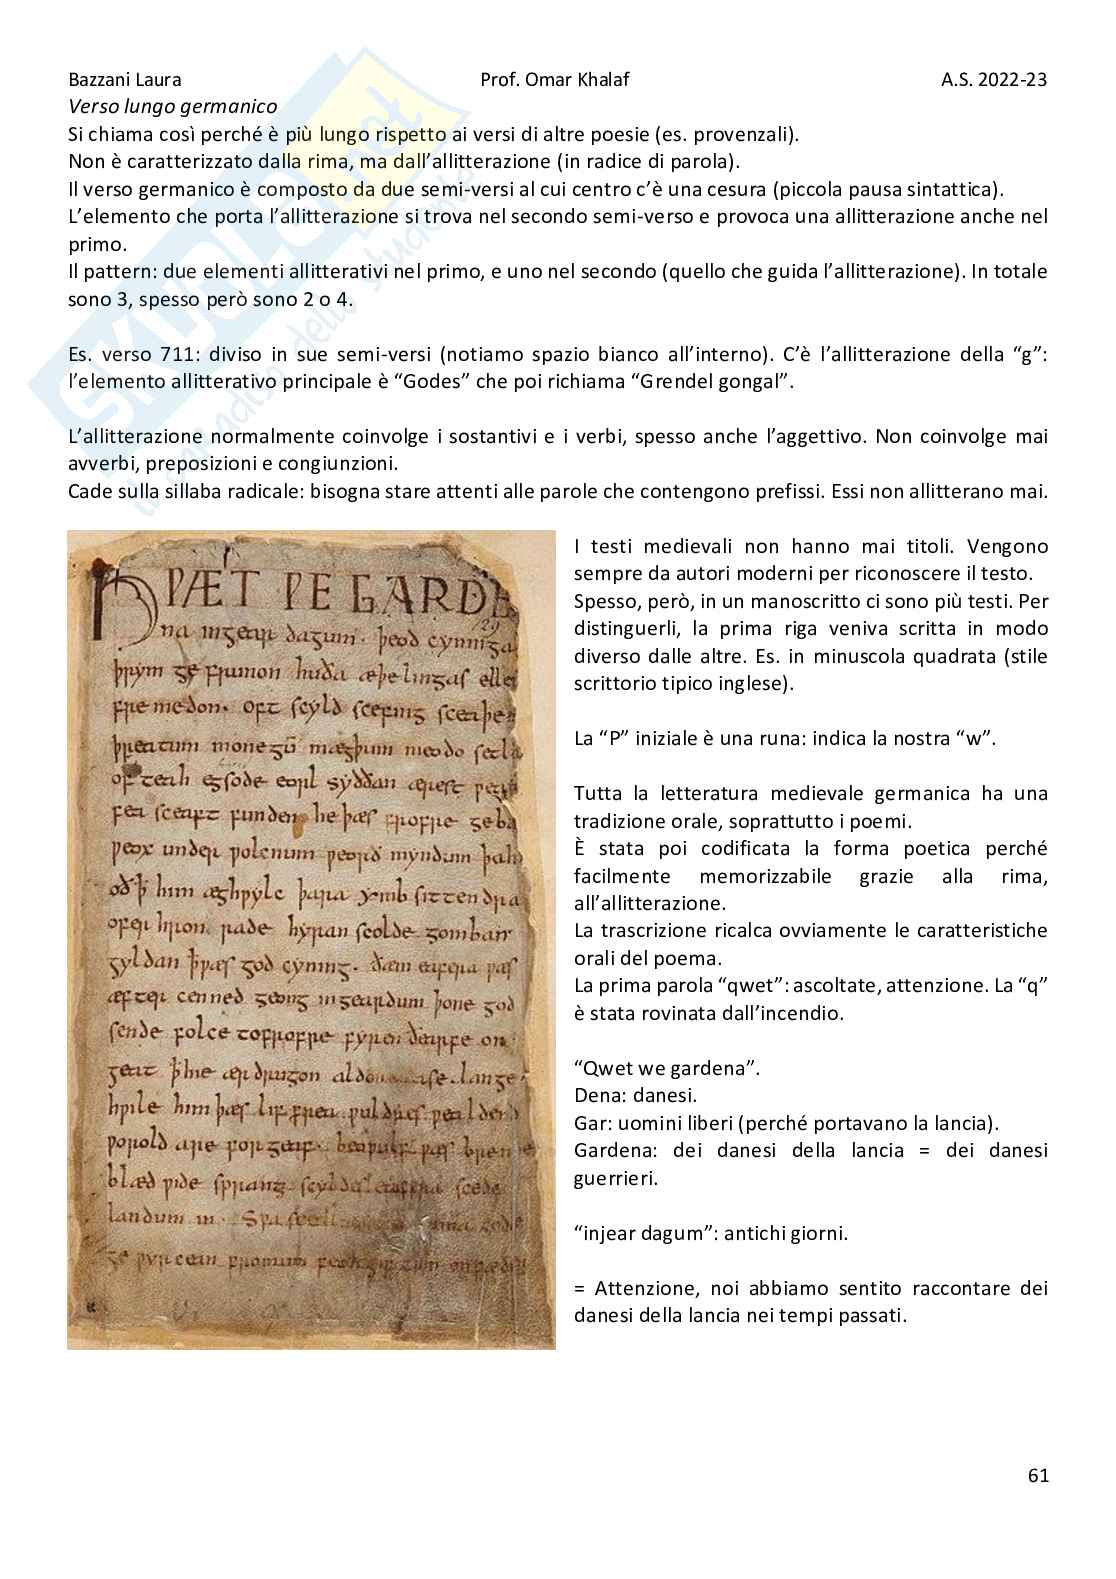 Bazzani Laura Prof. Omar Khalaf A.S. 2022-23
Verso lungo germanico
Si chiama così perché è più lungo rispetto ai versi di altre poesie (es. provenzali).
Non è caratterizzato dalla rima, ma dall’allitterazione (in radice di parola).
Il verso germanico è composto da due semi-versi al cui centro c’è una cesura (piccola pausa sintattica).
L’elemento che porta l’allitterazione si trova nel secondo semi-verso e provoca una allitterazione anche nel
primo.
Il pattern: due elementi allitterativi nel primo, e uno nel secondo (quello che guida l’allitterazione). In totale
sono 3, spesso però sono 2 o 4.
Es. verso 711: diviso in sue semi-versi (notiamo spazio bianco all’interno). C’è l’allitterazione della “g”:
l’elemento allitterativo principale è “Godes” che poi richiama “Grendel gongal”.
L’allitterazione normalmente coinvolge i sostantivi e i verbi, spesso anche l’aggettivo. Non coinvolge mai
avverbi, preposizioni e congiunzioni.
Cade sulla sillaba radicale: bisogna stare attenti alle parole che contengono prefissi. Essi non allitterano mai.
HǷÆT ǷE GARDE
na ingear dagum. þeod cyninga
þrym ge frunon huða æþelingas ellen
fremedon. oft scyld scefing sceaþen
þreatum monegū mægþum meodo setla
of teah egsode eorl syððan ærest
feasceaft funden he þæs frofre geba
ƿeox under ƿolcnum ƿeorð myndum þah
oð þ him æghƿylc þara ymb sittendra
ofer hron rade hyran scolde gomban
gyldan þ ƿæs god cyning. ðæm eafera ƿæs
æfter cenned geong in geardum þone god
sende folce to frofre fyren ðearfe on
geat þ hie ær drugon aldor lange
hƿile him þæs lif frea ƿuldres ƿealdend
ƿorold are forgeaf. beoƿulf ƿæs breme
blæd ƿide sprang scyldes eafera scede
landum in. Sƿa
I testi medievali non hanno mai titoli. Vengono
sempre da autori moderni per riconoscere il testo.
Spesso, però, in un manoscritto ci sono più testi. Per
distinguerli, la prima riga veniva scritta in modo
diverso dalle altre. Es. in minuscola quadrata (stile
scrittorio tipico inglese).
La “P” iniziale è una runa: indica la nostra “w”.
Tutta la letteratura medievale germanica ha una
tradizione orale, soprattutto i poemi.
È stata poi codificata la forma poetica perché
facilmente memorizzabile grazie alla rima,
all’allitterazione.
La trascrizione ricalca ovviamente le caratteristiche
orali del poema.
La prima parola “qwet”: ascoltate, attenzione. La “q”
è stata rovinata dall’incendio.
“Qwet we gardena”.
Dena: danesi.
Gar: uomini liberi (perché portavano la lancia).
Gardena: dei danesi della lancia = dei danesi
guerrieri.
“injear dagum”: antichi giorni.
= Attenzione, noi abbiamo sentito raccontare dei
danesi della lancia nei tempi passati.
61
SKUOLA.net
il paradiso dello studente